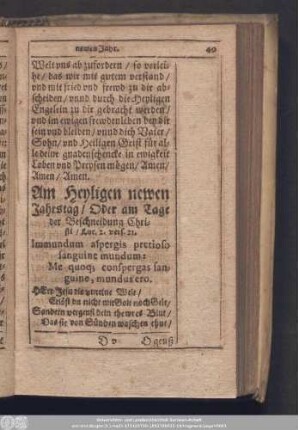 newen Jahr. 49
Welt uns abzufordern / so verlei-
he / das wir mit gutem verstand /
und mit fried und frewd zu dir ab-
scheiden / unnd durch die Heyligen
Engelein zu dir gebracht werden /
und im ewigen frewdenleben bey dir
sein und bleiben / unnd dich Vater /
Sohn / und Heiligen Geist für al-
le deine gnadenschencke in ewigkeit
Loben und Preysen mögen / Amen /
Amen / Amen.
Am Heyligen newen
Jahrstag / Oder am Tage
der Beschneidung Chri-
sti / Luc. 2. vers. 21.
Immundum aspergis pretioso
sanguine mundum:
Me quoq; conspergas san-
guine, mundus ero.
HErr Jesu die unreine Welt /
Erlöst du nicht mit Golt noch Gelt /
Sondern vergeust dein thewres Blut /
Das sie von Sünden waschen thut /
O geuß